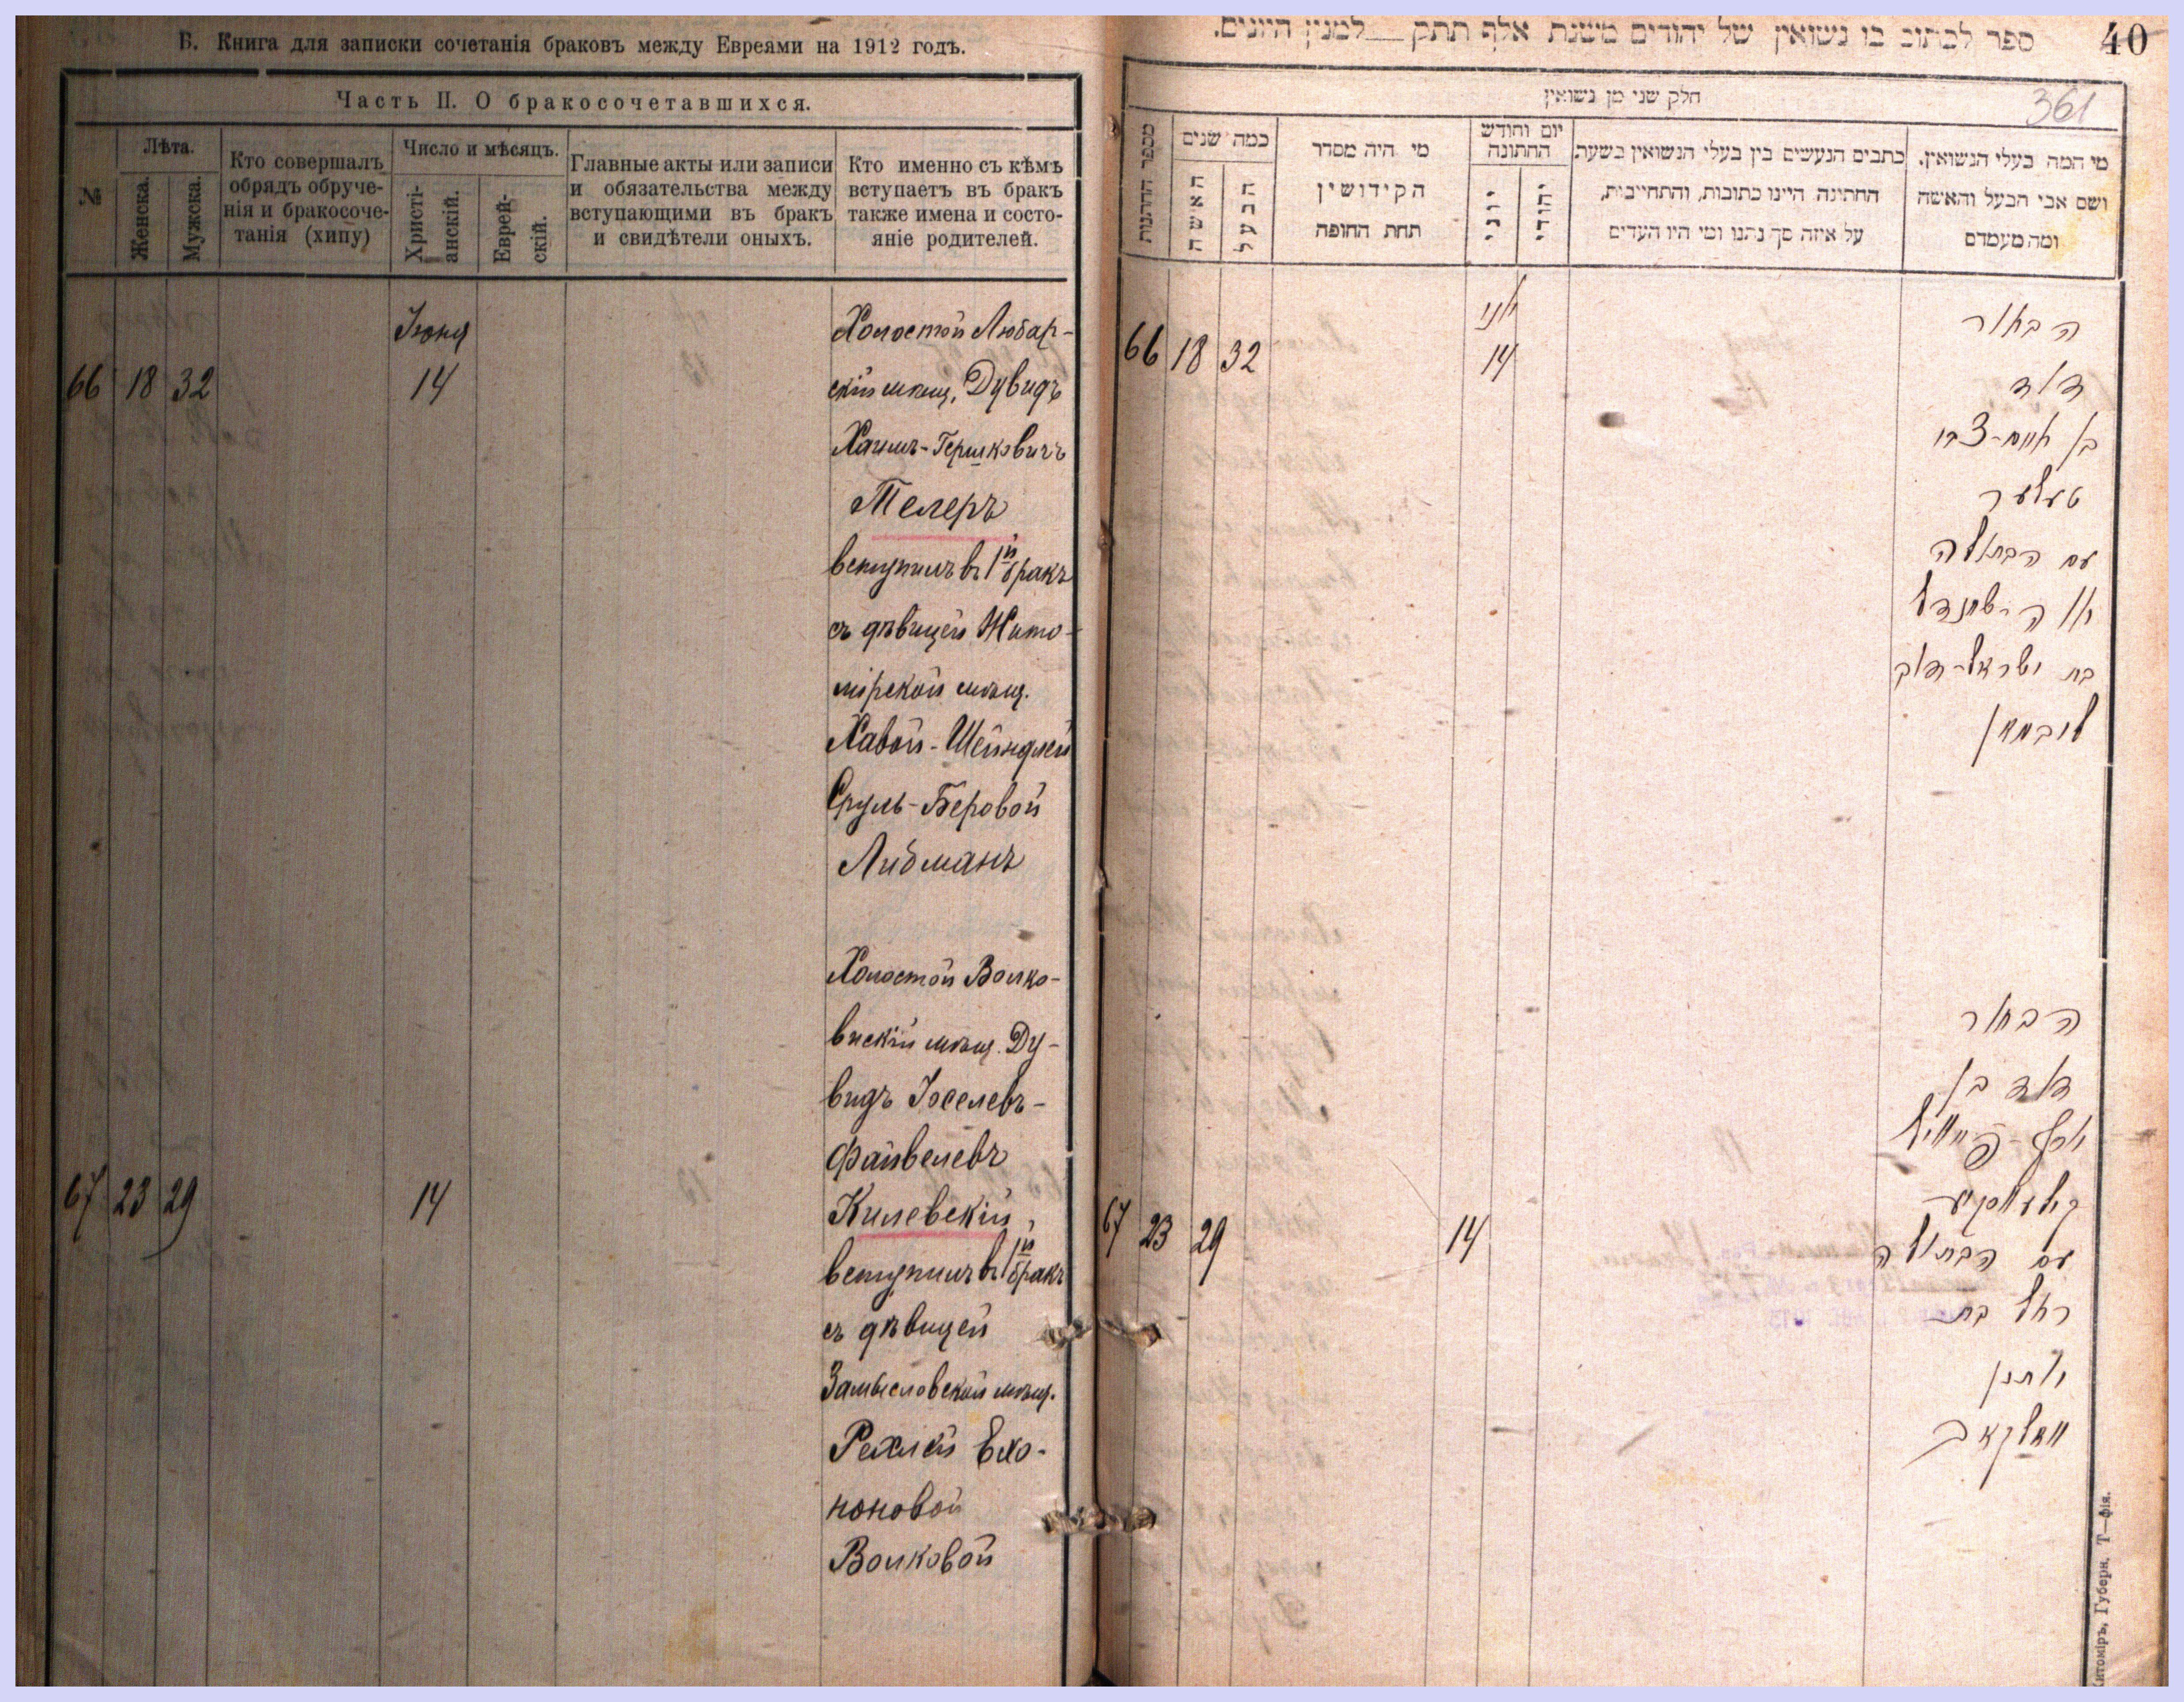 Б. Книга для записки сочетанія браковъ между Евреями на 1912 годъ.
Часть II. О бракосочетавшихся.
№
Лѣта.
Женска.
Мужска.
Кто совершалъ
обрядъ обруче-
нія и бракосоче-
танія (хипу)
Число и мѣсяцъ.
Христі-
анскій.
Еврей-
скій.
Главные акты или записи
и обязательства между
вступающими въ бракъ
и свидѣтели оныхъ.
Кто именно съ кѣмъ
вступаетъ въ бракъ
также имена и состо-
яніе родителей.
Іюня
66 18 32 14
Холостой Любар-
скій мѣщ. Дувидъ
Хаимъ-Гершковичъ
Телеръ
вступилъ въ 1й бракъ
съ дѣвицей Жито-
мірской мѣщ.
Хавой-Шейндлей
Сруль-Беровой
Либманъ
67 23 29 14
Холостой Волко-
вискій мѣщ. Ду-
видъ Іоселевъ-
Файвелевъ
Килевскій,
вступилъ въ 1й бракъ
съ дѣвицей
Замысловской мѣщ.
Рехлей Ехо-
ноновой
Волковой
ספר לכתוב בו נשואין של יהודים משנת אלף תתק למנין היונים.
40
361
חלק שני מן נשואין
מספר החתונות
כמה שנים
האשה
הבעל
מי היה מסדר
הקידושין
תחת החופה
יום וחודש
החתונה
יוני
יהודי
כתבים הנעשים בין בעלי הנשואין בשעת
החתונה היינו כתובות, והתחייבות,
על איזה סך נתנו ומי היו העדים
מי המה בעלי הנשואין,
ושם אבי הבעל והאשה
ומה מעמדם
יוני
66 18 32 14
הבחור
דוד
בן חיים-צבי
טעלער
עם הבתולה
חוה-שיינדל
בת ישראל-דוב
ליבמאן
67 23 29 14
הבחור
דוד בן
יוסף-פייוויל
עם הבתולה
רחל בת
וואלקאוו
Житоміръ, Губерн. Т—фія.